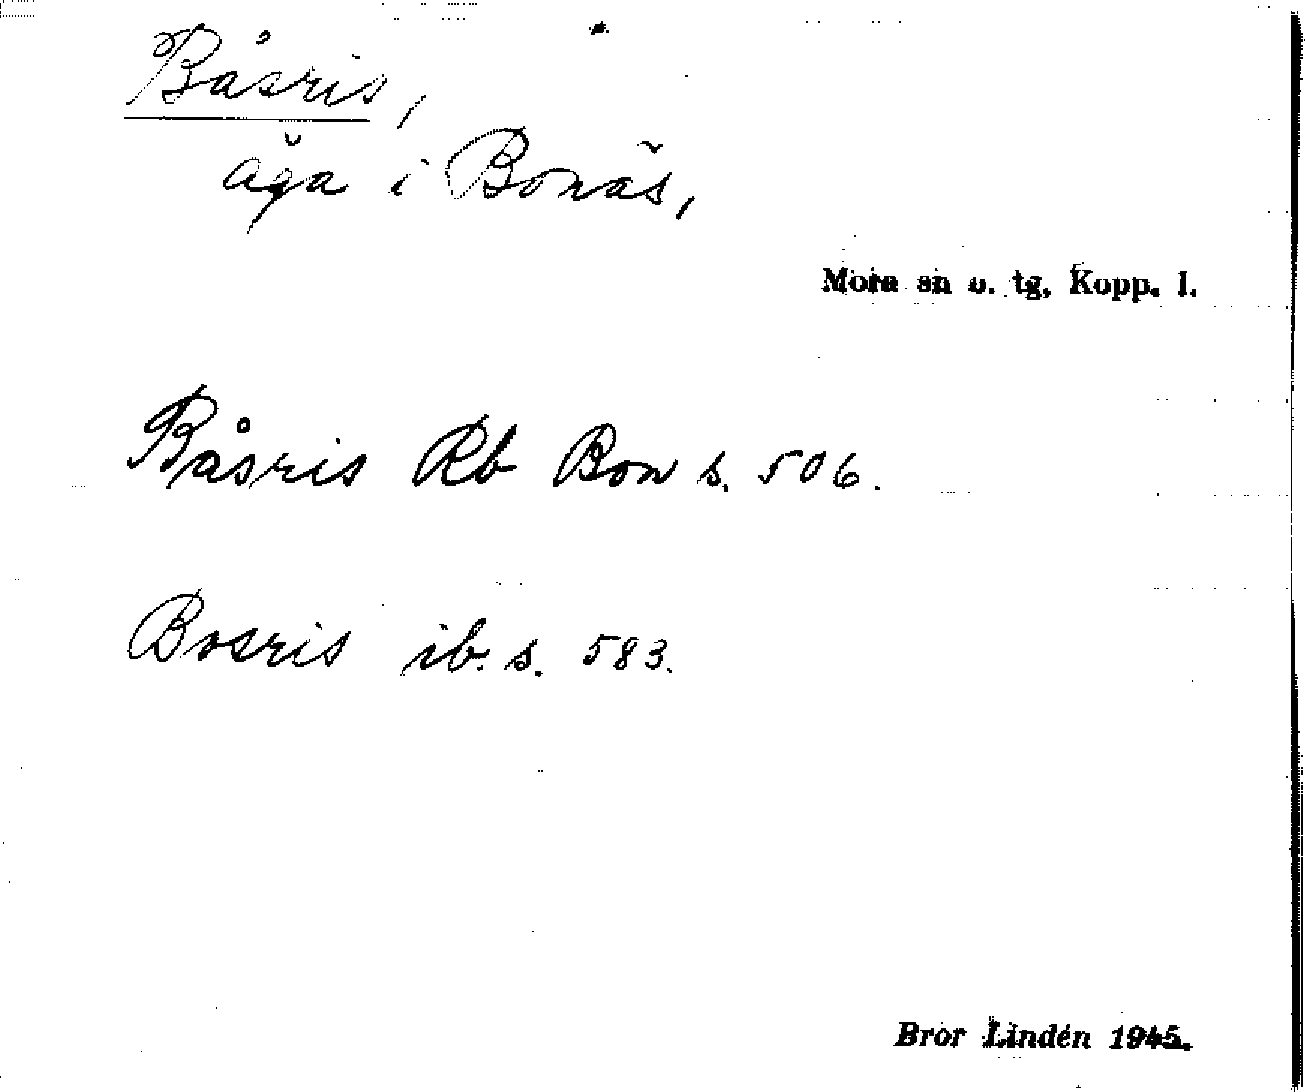 Båsris,
äga i Bonäs,
Mora sn o. tg, Kopp. l.
Båsris Rb Bon s. 506.
Bosris ib. s. 583.
Bror Lindén 1945.